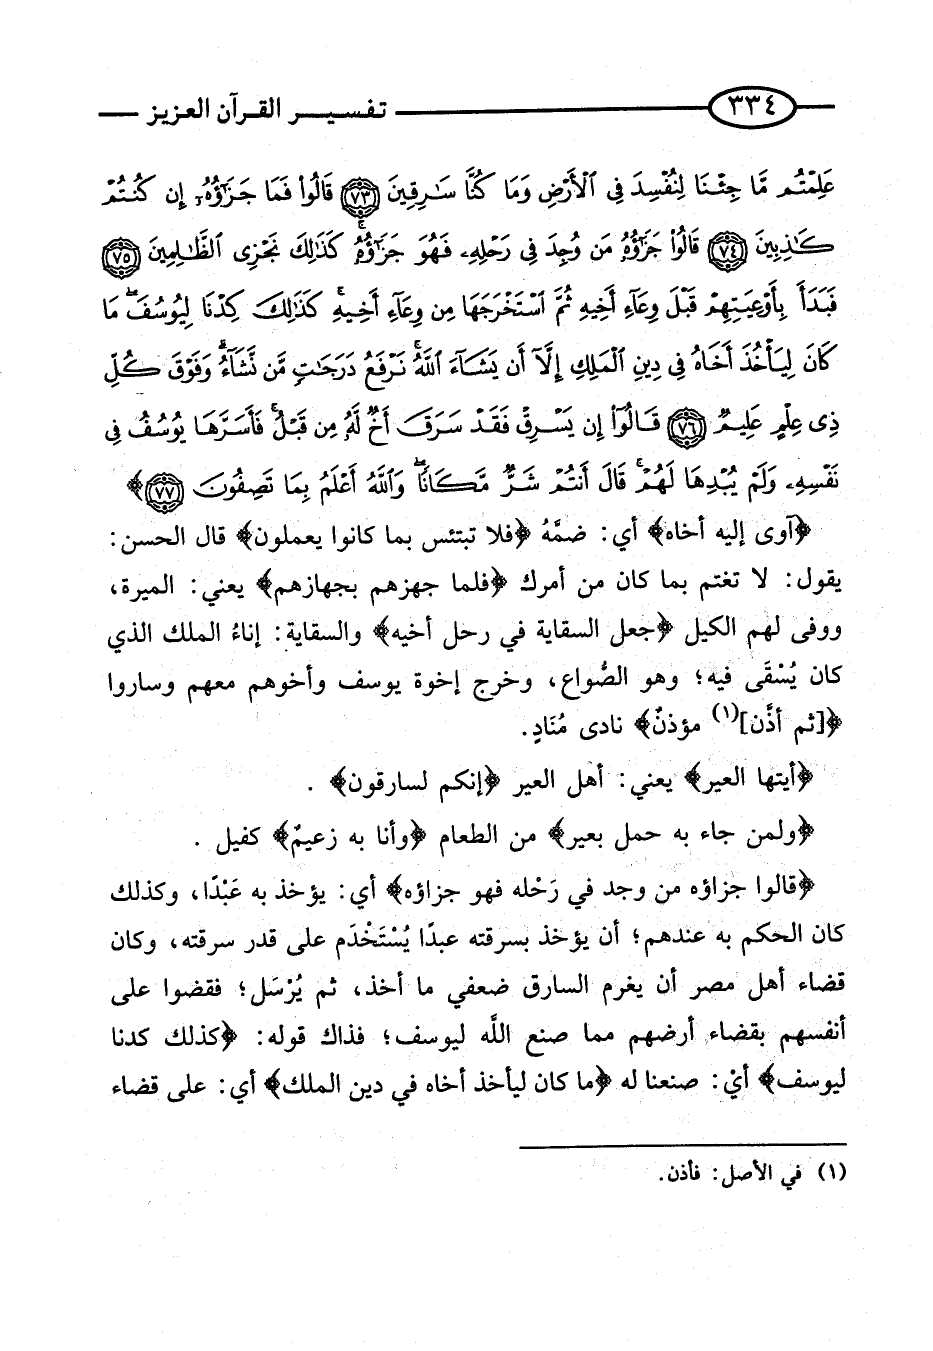 ٣٣٤ تفسير القرآن العزيز
عَلِمْتُم مَّا جِئْنَا لِنُفْسِدَ فِي الْأَرْضِ وَمَا كُنَّا سَارِقِينَ ﴿٧٣﴾ قَالُوا فَمَا جَزَاؤُهُ إِن كُنتُمْ
كَاذِبِينَ ﴿٧٤﴾ قَالُوا جَزَاؤُهُ مَن وُجِدَ فِي رَحْلِهِ فَهُوَ جَزَاؤُهُ كَذَٰلِكَ نَجْزِي الظَّالِمِينَ ﴿٧٥﴾
فَبَدَأَ بِأَوْعِيَتِهِمْ قَبْلَ وِعَاءِ أَخِيهِ ثُمَّ اسْتَخْرَجَهَا مِن وِعَاءِ أَخِيهِ كَذَٰلِكَ كِدْنَا لِيُوسُفَ مَا
كَانَ لِيَأْخُذَ أَخَاهُ فِي دِينِ الْمَلِكِ إِلَّا أَن يَشَاءَ اللَّهُ نَرْفَعُ دَرَجَاتٍ مَّن نَّشَاءُ وَفَوْقَ كُلِّ
ذِي عِلْمٍ عَلِيمٌ ﴿٧٦﴾ قَالُوا إِن يَسْرِقْ فَقَدْ سَرَقَ أَخٌ لَّهُ مِن قَبْلُ فَأَسَرَّهَا يُوسُفُ فِي
نَفْسِهِ وَلَمْ يُبْدِهَا لَهُمْ قَالَ أَنتُمْ شَرٌّ مَّكَانًا وَاللَّهُ أَعْلَمُ بِمَا تَصِفُونَ ﴿٧٧﴾﴾
﴿آوى إليه أخاه﴾ أي: ضمَّهُ ﴿فلا تبتئس بما كانوا يعملون﴾ قال الحسن:
يقول: لا تغتم بما كان من أمرك ﴿فلما جهزهم بجهازهم﴾ يعني: الميرة،
ووفى لهم الكيل ﴿جعل السقاية في رحل أخيه﴾ والسقاية: إناءُ الملك الذي
كان يُسْقَى فيه؛ وهو الصُّواع، وخرج إخوة يوسف وأخوهم معهم وساروا
﴿[ثم أذَّن](١) مؤذنٌ﴾ نادى مُنَادٍ.
﴿أيتها العير﴾ يعني: أهل العير ﴿إنكم لسارقون﴾ .
﴿ولمن جاء به حمل بعير﴾ من الطعام ﴿وأنا به زعيمٌ﴾ كفيل .
﴿قالوا جزاؤه من وجد في رَحْله فهو جزاؤه﴾ أي: يؤخذ به عَبْدًا، وكذلك
كان الحكم به عندهم؛ أن يؤخذ بسرقته عبدًا يُسْتَخْدَم على قدر سرقته، وكان
قضاء أهل مصر أن يغرم السارق ضعفي ما أخذ، ثم يُرْسَل؛ فقضوا على
أنفسهم بقضاء أرضهم مما صنع اللَّه ليوسف؛ فذاك قوله: ﴿كذلك كدنا
ليوسف﴾ أيْ: صنعنا له ﴿ما كان ليأخذ أخاه في دين الملك﴾ أي: على قضاء
(١) في الأصل: فأذن.